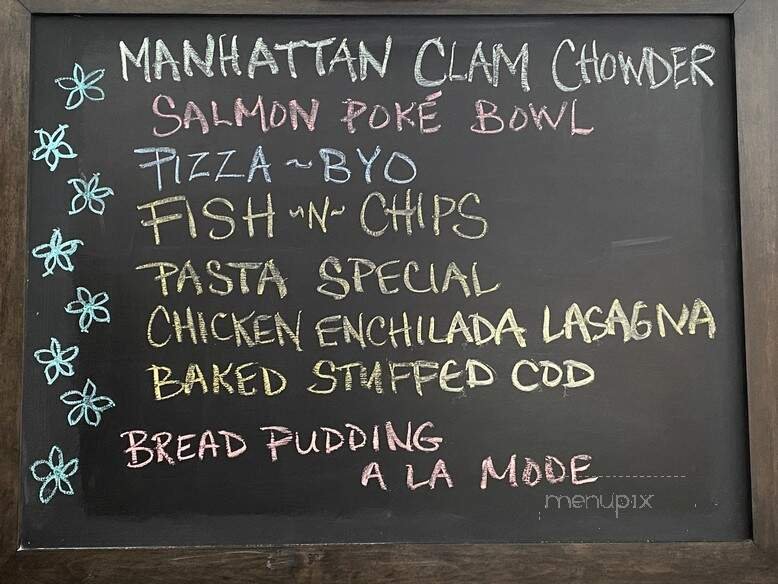 MANHATTAN CLAM CHOWDER
SALMON POKÉ BOWL
PIZZA ~ BYO
FISH ~N~ CHIPS
PASTA SPECIAL
CHICKEN ENCHILADA LASAGNA
BAKED STUFFED COD
BREAD PUDDING
A LA MODE
menupix